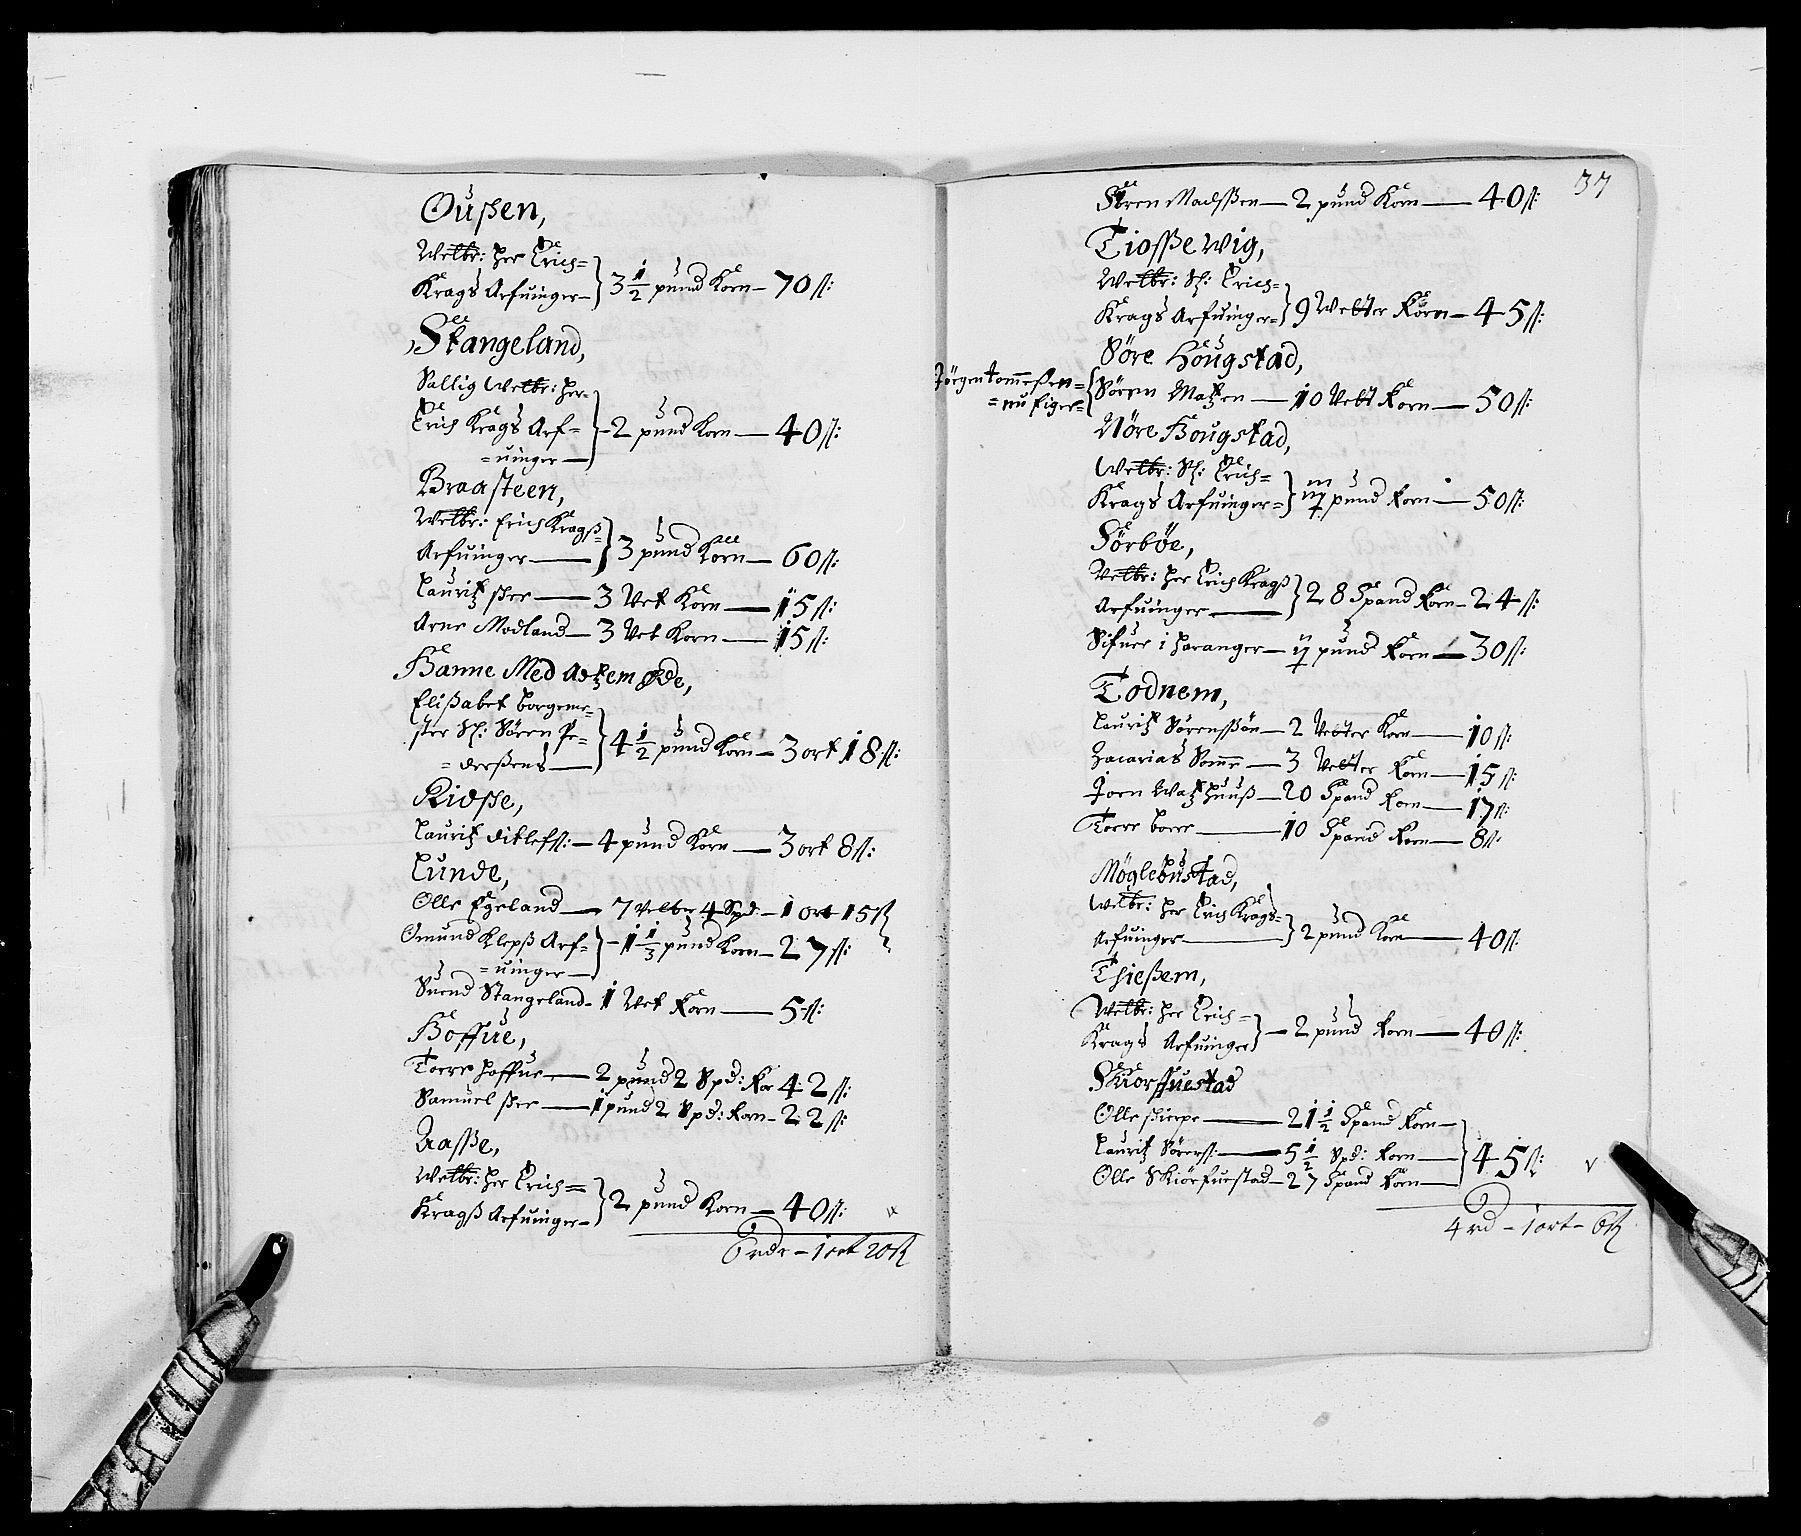 Oußen,
Welbr: Her Erich=
Krags Arfuinger — 3 1/2 pund Korn — 70 ß:
Stangeland,
Sallig Welbr: Her=
Erich Krags Arf=
=uinger — 2 pund Korn — 40 ß:
Braasteen,
Welbr: Erich Kragß
Arfuinger — 3 pund Korn — 60 ß:
Lauritz — 3 Vet Korn — 15 ß:
Arne Modland — 3 Vet Korn — 15 ß:
Hanne Med Øde,
Elißabet borgeme=
ster Sl: Sören Pe=
=derßens — 4 1/2 pund Korn — 3 ort 18 ß:
Kioße,
Lauritz Ditlefs: — 4 pund Korn — 3 ort 8 ß:
Lunde,
Olle Egeland — 7 Vetter 4 Spd — 1 ort 15 ß
Omund Klepß Arf=
=uinger — 1 1/3 pund Korn — 27 ß:
Suend Stangeland — 1 Vet Korn — 5 ß:
Hoffue,
Torre Hoffue — 2 pund 2 Spd: Kor 42 ß:
Samuel — 1 pund 2 Spd: Korn — 22 ß:
Aaße,
Welbr: Her Erich=
Kragß Arfuinger — 2 pund Korn — 40 ß:
6 rdr — 1 ort 20 ß
37
Sören Madßen — 2 pund Korn — 40 ß:
Tioßewig,
Welbr: Sl: Erich=
Krags Arfuinger= 9 Vetter Korn — 45 ß:
Söre Hougstad,
Jörgen Tommeßen=
=nu Eiger=
Sören Matzen — 10 Vet Korn — 50 ß:
Nöre Hougstad,
Welbr: Sl: Erich=
Krags Arfuinger= pund Korn — 50 ß:
Sörböe,
Welbr: Her Erich Kragß
Arfuinger — 28 Spand Korn — 24 ß:
Sifuer i Haranger — pund Korn — 30 ß:
Todnem,
Lauritz Sörenßön — 2 Vetter Korn — 10 ß:
Zacarias Somme — 3 Vetter Korn — 15 ß:
Joen Watzhuuß — 20 Spand Korn — 17 ß:
Torre — 10 Spand Korn — 8 ß:
Möglebustad,
Welbr: Her Erich Krags=
Arfuinger — 2 pund Korn — 40 ß:
Thießem,
Welbr: Her Erich=
Krags Arfuinger — 2 pund Korn — 40 ß:
Skiorffuestad
Olle — 21 1/2 Spand Korn —
Lauritz Sörens: — 5 1/2 Spd: Korn —
Olle Skiörfuestad — 27 Spand Korn — 45 ß:
4 rd — 1 ort — 6 ß